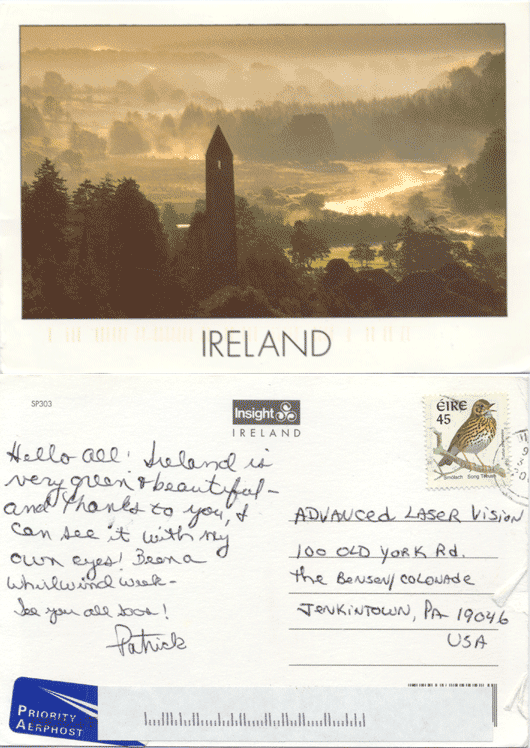 IRELAND
SP303
Insight
IRELAND
ÉIRE
45
Smólach Song Thrush
Hello All! Ireland is
very green & beautiful -
and thanks to you, I
can see it with my
own eyes! Been a
whirlwind week -
See you all soon!
Patrick
ADVANCED LASER VISION
100 OLD YORK Rd.
the BENSON/COLONADE
JENKINTOWN, PA 19046
USA
PRIORITY
AERPHOST